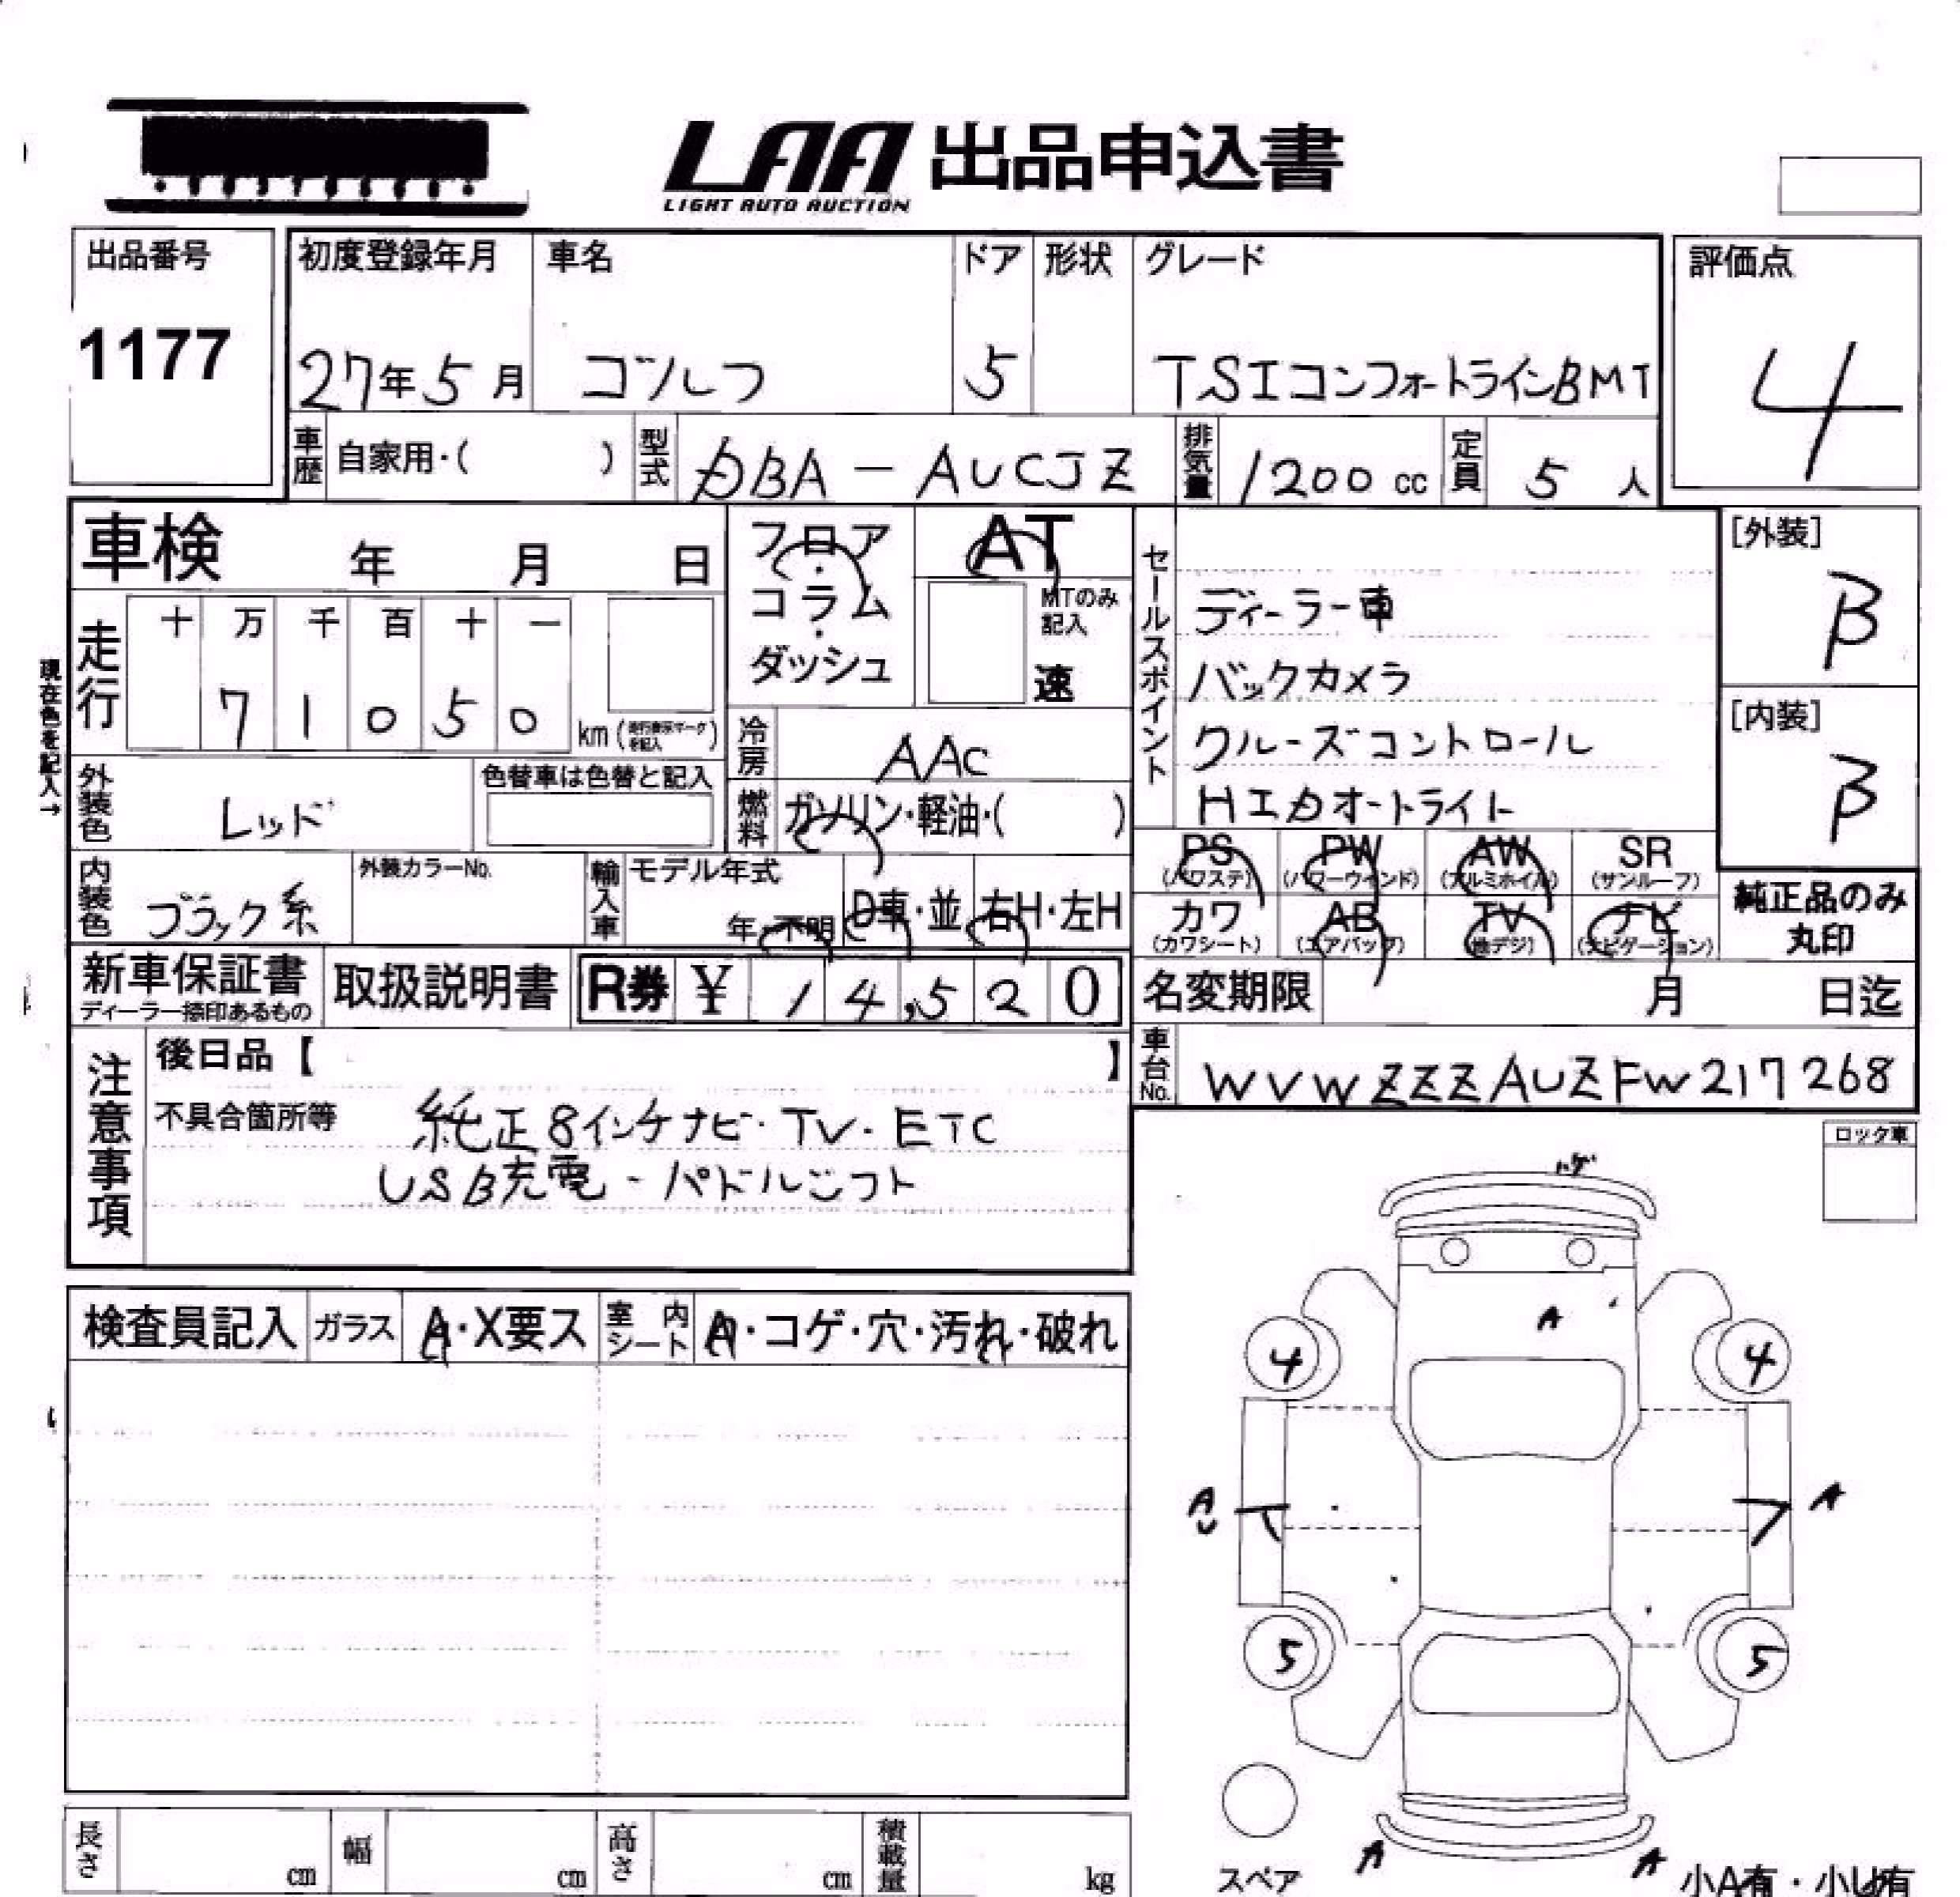 LAA 出品申込書
LIGHT AUTO AUCTION
出品番号
1177
初度登録年月 車名 ドア 形状 グレード
27年5月 ゴルフ 5 TSIコンフォートラインBMT
評価点
4
車歴 自家用・( ) 型式 DBA-AUCJZ 排気量 1200 cc 定員 5 人
車検 年 月 日
フロア・コラム・ダッシュ
AT
MTのみ記入
速
セールスポイント
ディーラー車
バックカメラ
クルーズコントロール
HIDオートライト
[外装]
B
[内装]
B
現在色を記入→
走行 十 万 千 百 十 一
7 1 0 5 0 km
冷房 AAC
外装色 レッド 色替車は色替と記入
燃料 ガソリン・軽油・( )
内装色 ブラック系 外装カラーNo.
輸入車 モデル年式 年・不明 D車・並 右H・左H
PS (パワステ) PW (パワーウインド) AW (アルミホイル) SR (サンルーフ)
カワ (カワシート) AB (エアバッグ) TV (地デジ) ナビ (ナビゲーション)
純正品のみ
丸印
新車保証書 取扱説明書 R券 ¥ 14,520
ディーラー捺印あるもの
名変期限 月 日迄
車台No. WVWZZZAUZFW217268
注意事項
後日品【 】
不具合箇所等 純正8インチナビ・TV・ETC
USB充電・パドルシフト
ロック車
ハゲ
検査員記入 ガラス A・X要ス 室内シート A・コゲ・穴・汚れ・破れ
A
4 4
A A
U
5 5
A A
スペア
小A有・小U有
長さ cm 幅 cm 高さ cm 積載量 kg